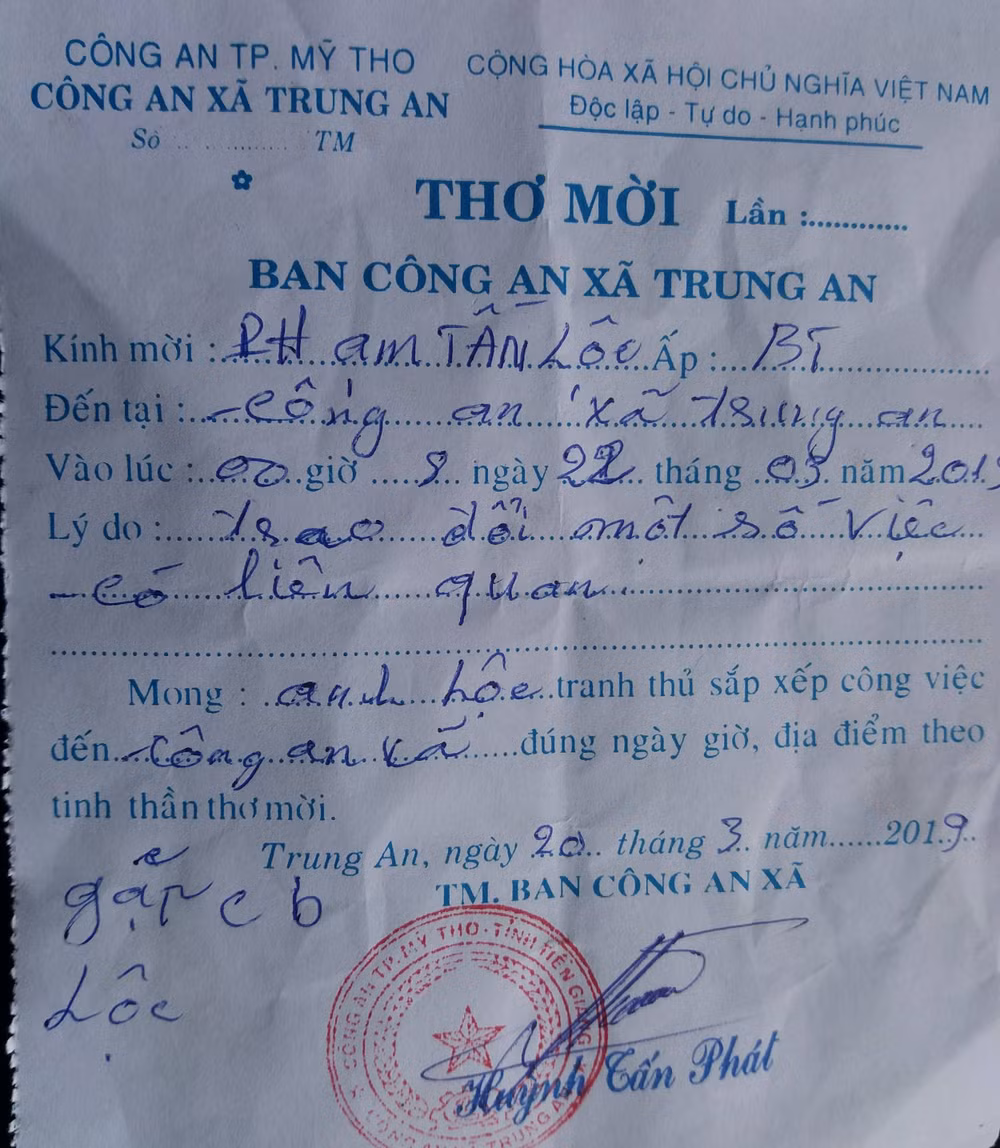 CÔNG AN TP. MỸ THO
CÔNG AN XÃ TRUNG AN
Số .............. TM
CỘNG HÒA XÃ HỘI CHỦ NGHĨA VIỆT NAM
Độc lập - Tự do - Hạnh phúc
THƠ MỜI Lần :............
BAN CÔNG AN XÃ TRUNG AN
Kính mời : PHAM TẤN Lôc Ấp : BT
Đến tại : công an xã trung an
Vào lúc : 00 giờ 8 ngày 22 tháng 03 năm 2019
Lý do : trao đổi một số việc
có liên quan
Mong : anh Lộc tranh thủ sắp xếp công việc
đến công an xã đúng ngày giờ, địa điểm theo
tinh thần thơ mời.
Trung An, ngày 20 tháng 3 năm......2019
TM. BAN CÔNG AN XÃ
gặp c b
Lôc
CÔNG AN TP. MỸ THO - TỈNH TIỀN GIANG
CÔNG AN XÃ TRUNG AN
Huỳnh Tấn Phát